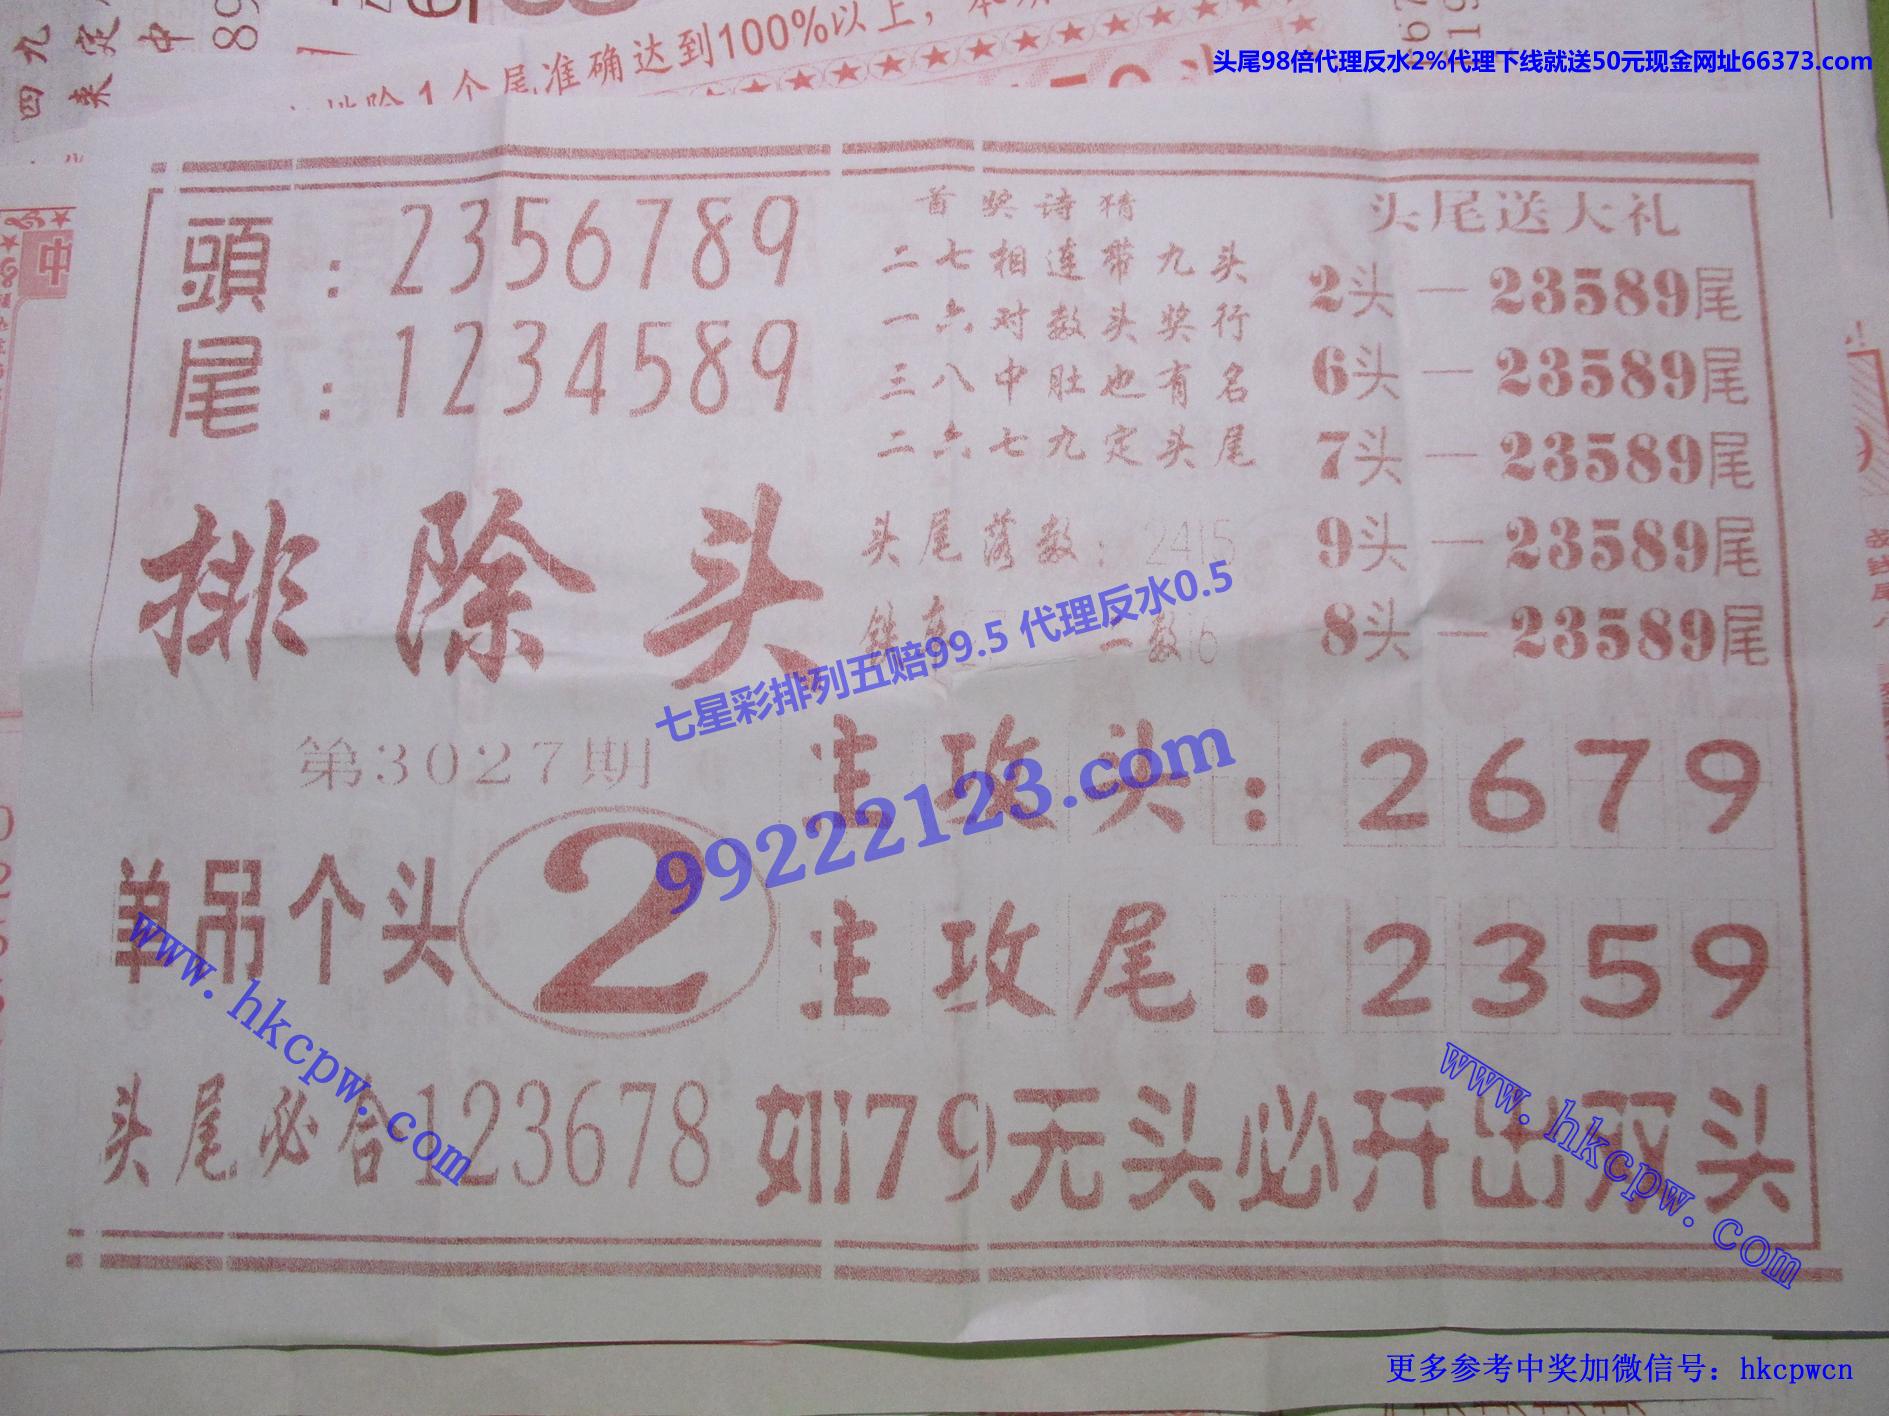 四九
来定
中
89
准确达到100%以上，本期
排除1个尾
头尾98倍代理反水2%代理下线就送50元现金网址66373.com
中
頭：2356789
尾：1234589
首奖诗猜
二七相连带九头
一六对数头奖行
三八中肚也有名
二六七九定头尾
头尾落数：2415
二数16
头尾送大礼
2头—23589尾
6头—23589尾
7头—23589尾
9头—23589尾
8头—23589尾
排除头
七星彩排列五赔99.5 代理反水0.5
99222123.com
第3027期
单吊个头 2
主攻头：2679
主攻尾：2359
www.hkcpw.com
头尾必合123678
如79无头必开出双头
www.hkcpw.com
更多参考中奖加微信号：hkcpwcn